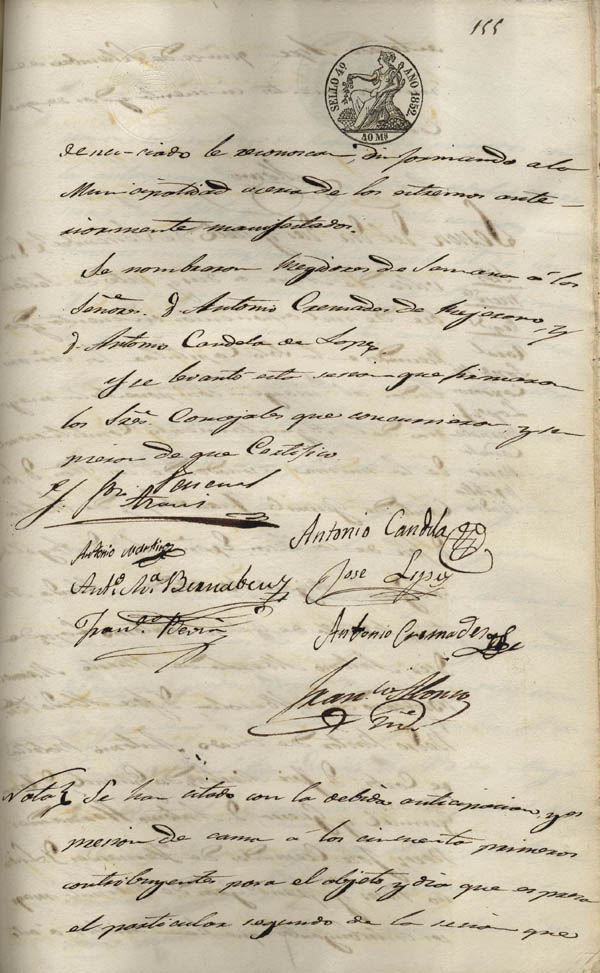 155
SELLO 4º AÑO 1852.
40 Ms
denunciado le reconoscan, informando a la
Municipalidad acerca de los estremos ante-
riormente manifestados.
Se nombraron Regidores de Semana á los
Señores. D. Antonio Cremades de y
D. Antonio Candela de Lopez.
Y se levantó esta sesion que firmaron
los Sres. Concejales que concurrieron, y su
de que Certifico.
Antonio Candela
Antonio
Jose Lopez
Anto. Ma. Bernabeu
Antonio Cremades
Franco. Alonso
Nota Se han citado con la debida anticipacion, y
de á los cincuenta primeros
contribuyentes para el objeto, y dia que espresa
el particular segundo de la sesion que